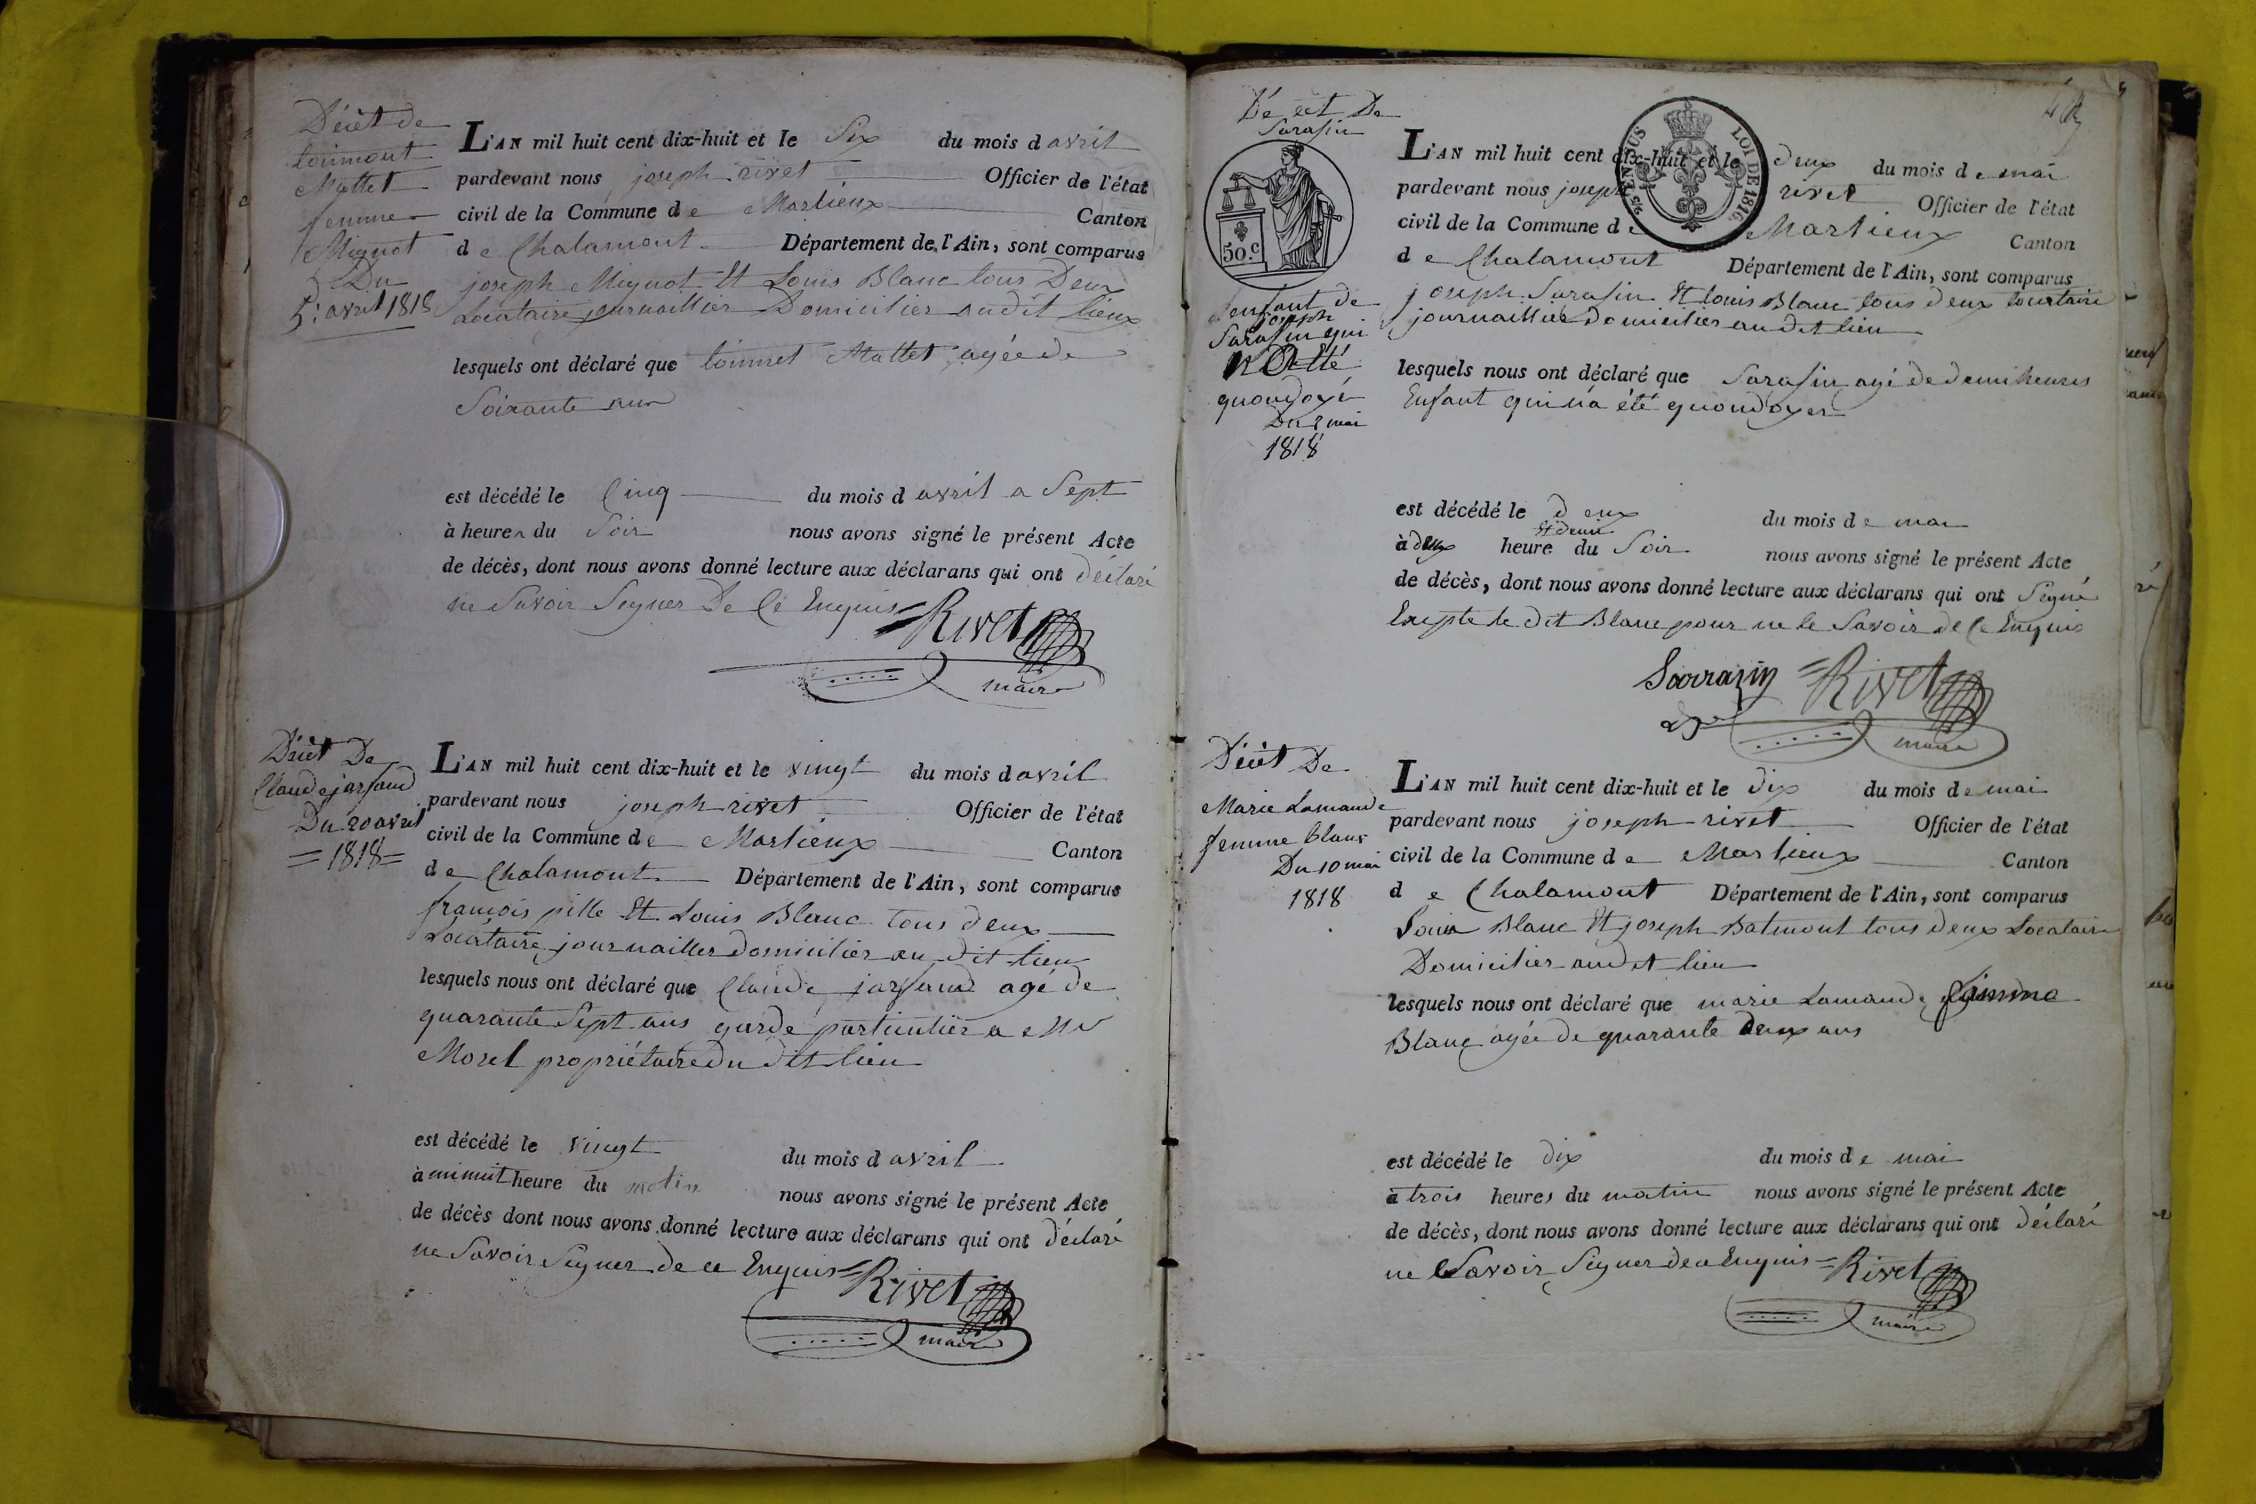 Décèt de
Mattet
femme
Mignot
Du
5: avril 1818
L'AN mil huit cent dix-huit et le Six du mois d avril
pardevant nous joseph rivet Officier de l'état
civil de la Commune d e Marlieux Canton
d e Chalamont Département de l'Ain, sont comparus
joseph Mignot Et Louis Blanc tous Deux
Locataire journaillier Domicilier audit lieux
lesquels ont déclaré que Mattet agée de
Soixante ans
est décédé le Cinq du mois d avril a Sept
à heures du Soir nous avons signé le présent Acte
de décès, dont nous avons donné lecture aux déclarans qui ont déclaré
ne Savoir Segner De Ce Enquis =Rivet
maire
Décèt De
Claude jarsaud
Du 20 avril
=1818=
L'AN mil huit cent dix-huit et le vingt du mois d avril
pardevant nous joseph rivet Officier de l'état
civil de la Commune d e Marlieux Canton
d e Chalamont Département de l'Ain, sont comparus
françois pille Et Louis Blanc tous deux
Locataire journailler domicilier au dit lieu
lesquels nous ont déclaré que Claude jarsaud agé de
quarante Sept ans garde particulier a
Morel propriétaire du dit lieu
est décédé le vingt du mois d avril
à minuit heure du matin nous avons signé le présent Acte
de décès dont nous avons donné lecture aux déclarans qui ont déclaré
ne Savoir Segner de ce Enquis =Rivet
maire
Décèt De
Sarasin
50.c
lenfant de
joseph
Sarasin qui
n A Eté
quondoyé
Du 2 mai
1818
L'AN mil huit cent dix-huit et le deux du mois d e mai
pardevant nous joseph rivet Officier de l'état
civil de la Commune d e Marlieux Canton
d e Chalamont Département de l'Ain, sont comparus
9/5 EN SUS LOI DE 1816.
joseph Sarasin Et louis Blanc tous deux locataire
journaillier domicilier au dit lieu
lesquels nous ont déclaré que Sarasin agé de demiheures
Enfant qui n'a été quondoyer
est décédé le deux du mois d e mai
Et demi
à deux heure du Soir nous avons signé le présent Acte
de décès, dont nous avons donné lecture aux déclarans qui ont Segné
Excepte le dit Blanc pour ne le Savoir de Ce Enquis
Sarrazin =Rivet
maire
Décèt De
Marie Lamande
femme blanc
Du 10 mai
1818
L'AN mil huit cent dix-huit et le dix du mois d e mai
pardevant nous joseph rivet Officier de l'état
civil de la Commune d e Marlieux Canton
d e Chalamont Département de l'Ain, sont comparus
Louis Blanc Et joseph Batmont tous deux Locataire
Domicilier audit lieu
lesquels nous ont déclaré que marie Lamande femme
Blanc agée de quarante deux ans
est décédé le dix du mois d e mai
à trois heures du matin nous avons signé le présent Acte
de décès, dont nous avons donné lecture aux déclarans qui ont déclaré
ne Savoir Segner de ce Enquis =Rivet
maire